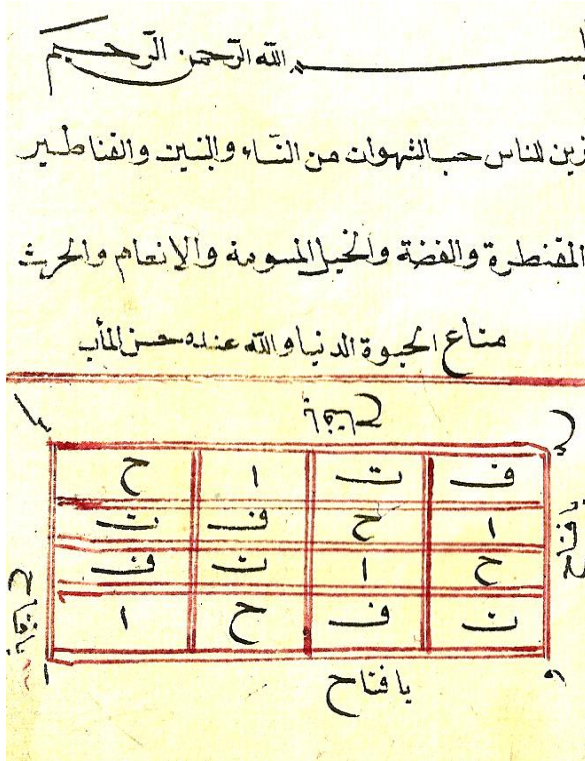 بسم الله الرّحمن الرّحيم
زين للناس حب الشهوات من النساء والبنين والقناطير
المقنطرة والفضة والخيل المسومة والانعام والحرث
متاع الحيوة الدنيا والله عنده حسن المأب
يا فتاح
ف ت ا ح
ا ح ف ت
ح ا ت ف
ت ف ح ا
يا فتاح
يا فتاح
يا فتاح